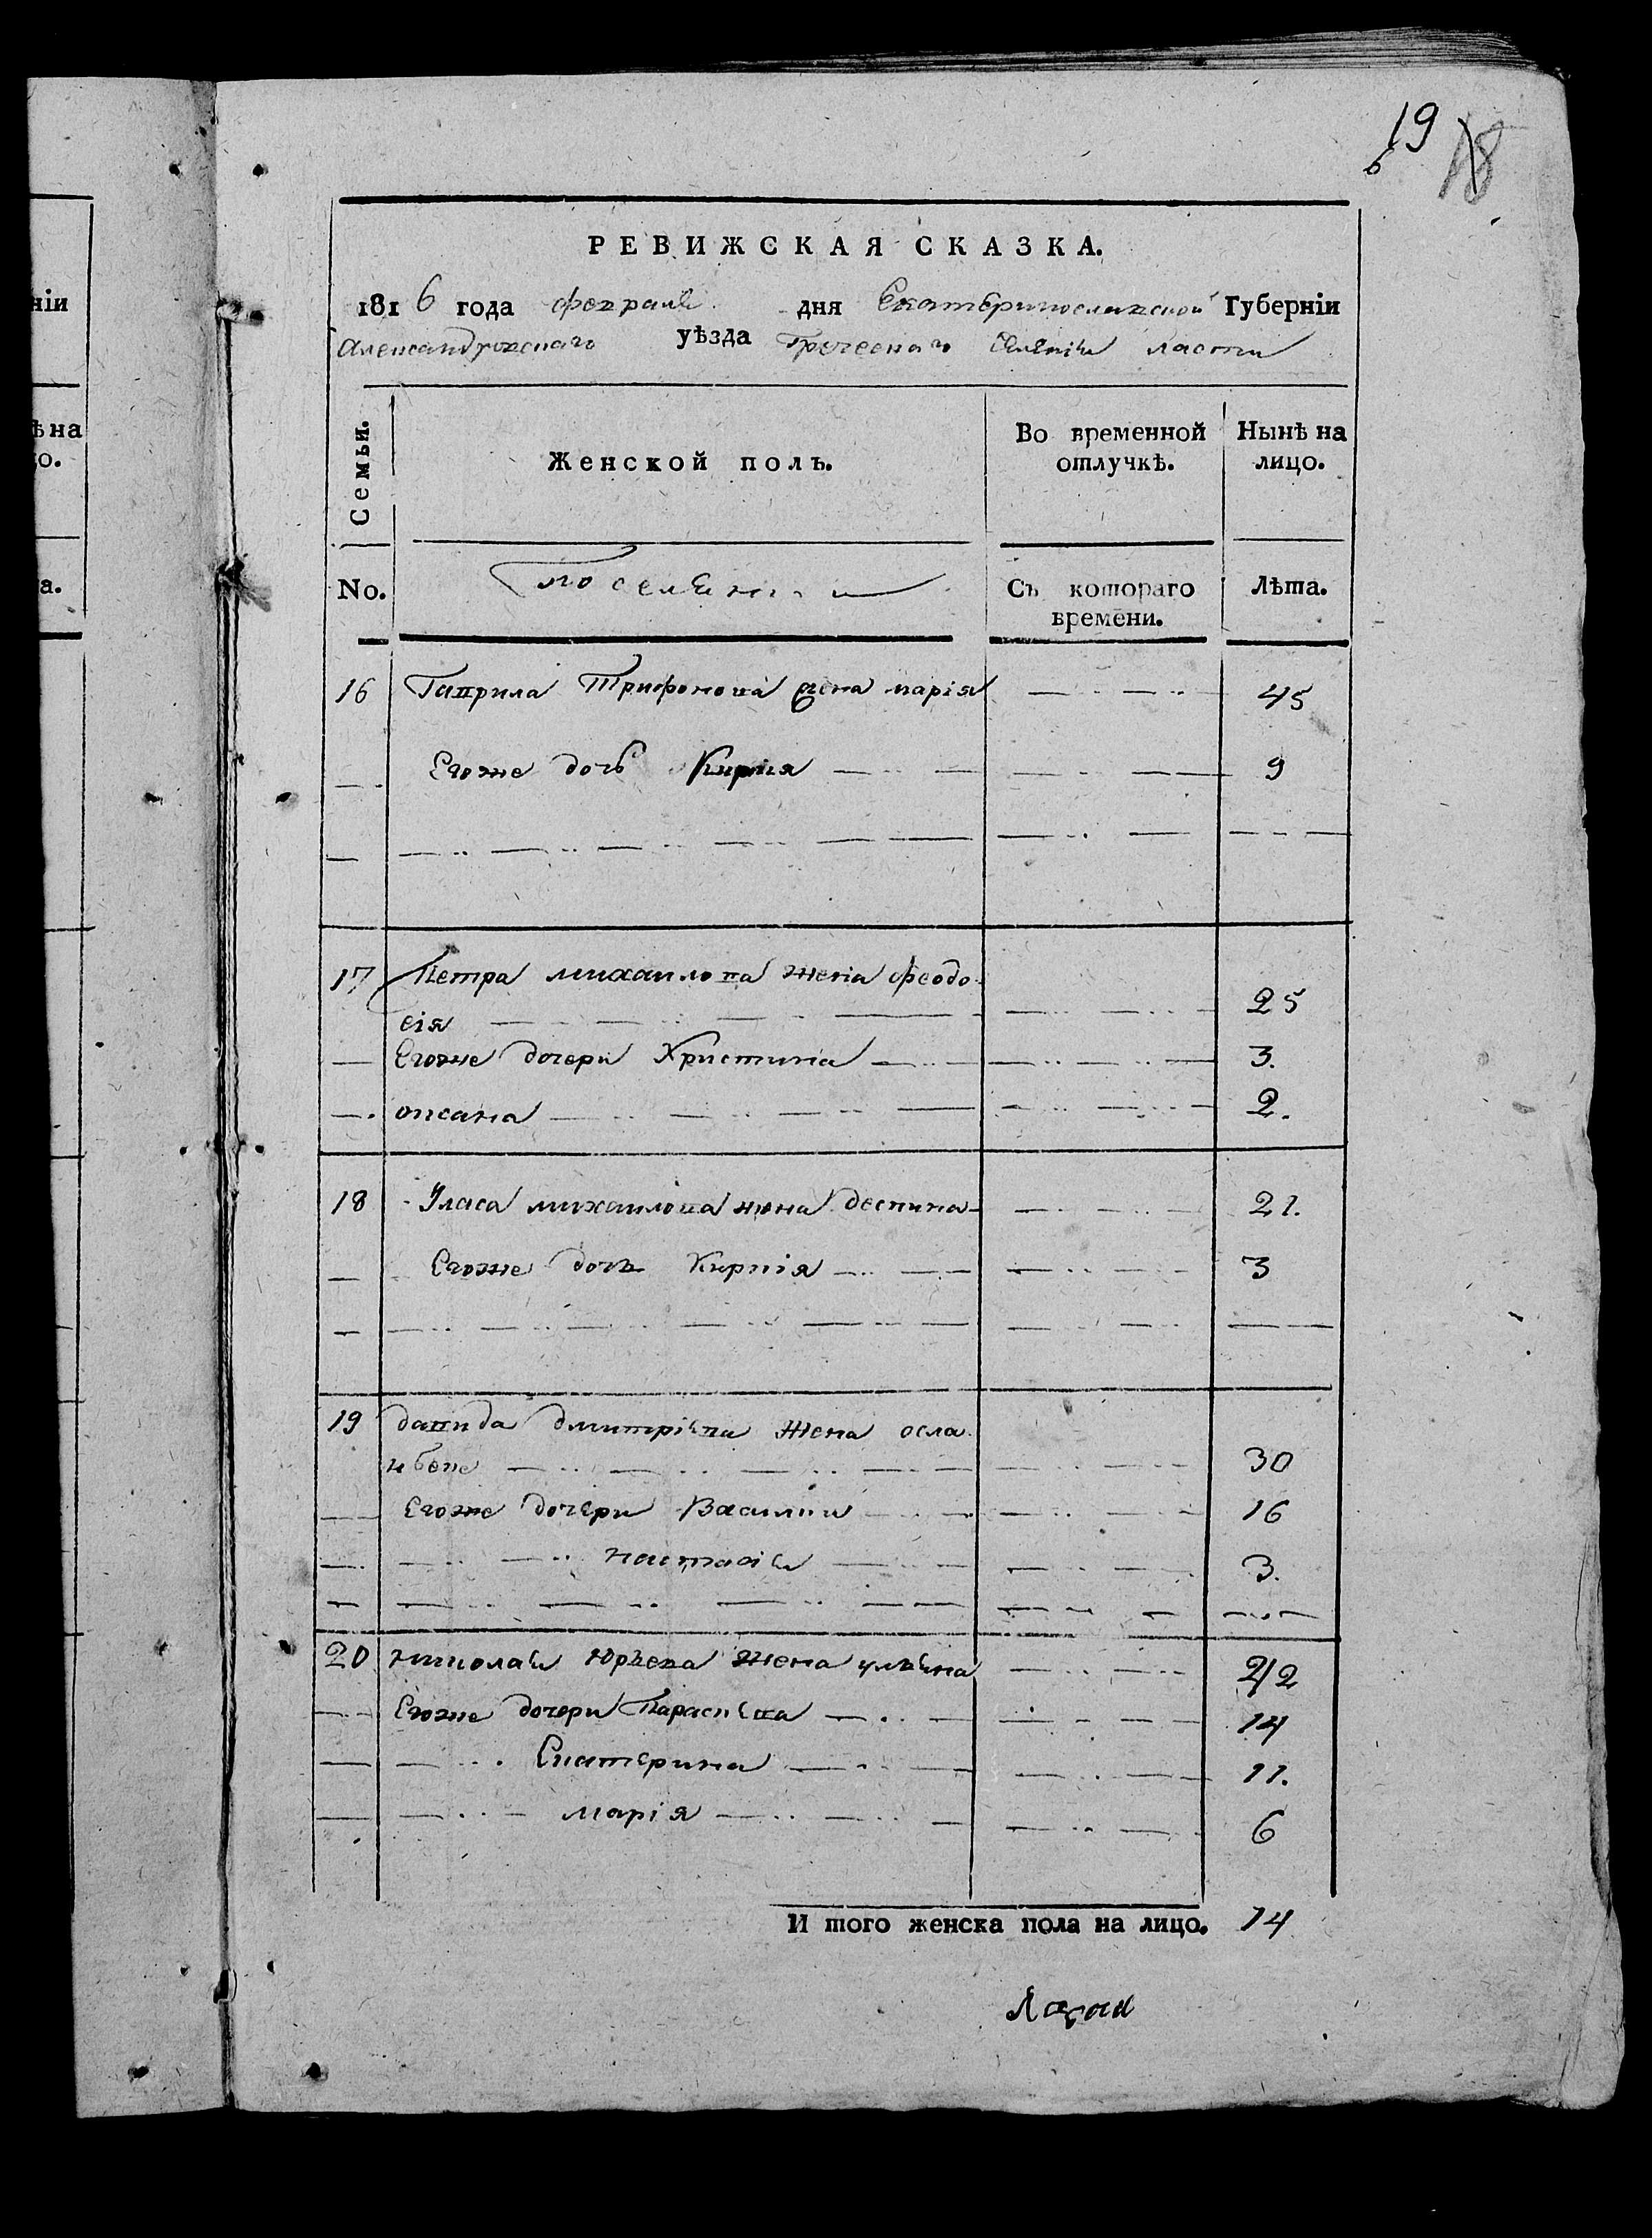 19
18
РЕВИЖСКАЯ СКАЗКА.
1816 года февраля дня Екатеринославской Губерніи
Александровскаго уѣзда Греческаго селенія ласпи
Семьи.
Женской полъ.
Во временной отлучкѣ.
Нынѣ на лицо.
No.
поселяни
Съ котораго времени.
Лѣта.
16 Гаврила Трифонова жена марія 45
Егоже дочь Кирикія 9
17 Петра михаилова жена феодо
сія 25
Егоже дочери Христина 3.
оксана 2.
18 Уласа михаилова жена деспина 21.
Егоже дочъ Киркія 3
19 давида дмитріева жена осла
нбеке 30
Егоже дочери Василии 16
настасія 3.
20 николая Юрьева жена ульяна 42
Егоже дочери Параскева 14
Екатерина 11.
марія 6
И того женска пола на лицо. 14
ніи
ѣ на
о.
а.